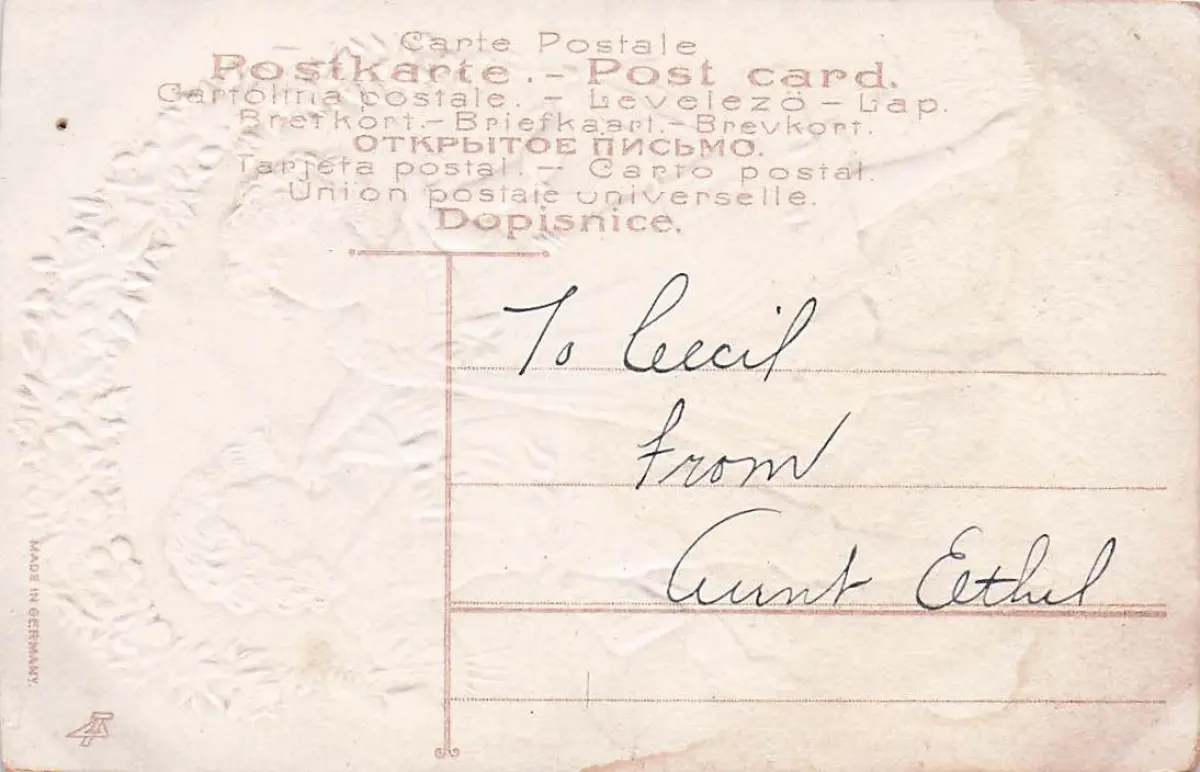 Carte Postale
Postkarte. – Post card.
Cartolina postale. – Levelezö – Lap.
Brefkort. – Briefkaart. – Brevkort.
ОТКРЫТОЕ ПИСЬМО.
Tarjeta postal. – Carto postal.
Union postale universelle.
Dopisnice.
To Cecil
From
Aunt Ethel
MADE IN GERMANY.